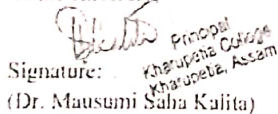 Principal
Kharupetia College
Kharupetia, Assam
Signature:
(Dr. Mausumi Saha Kalita)